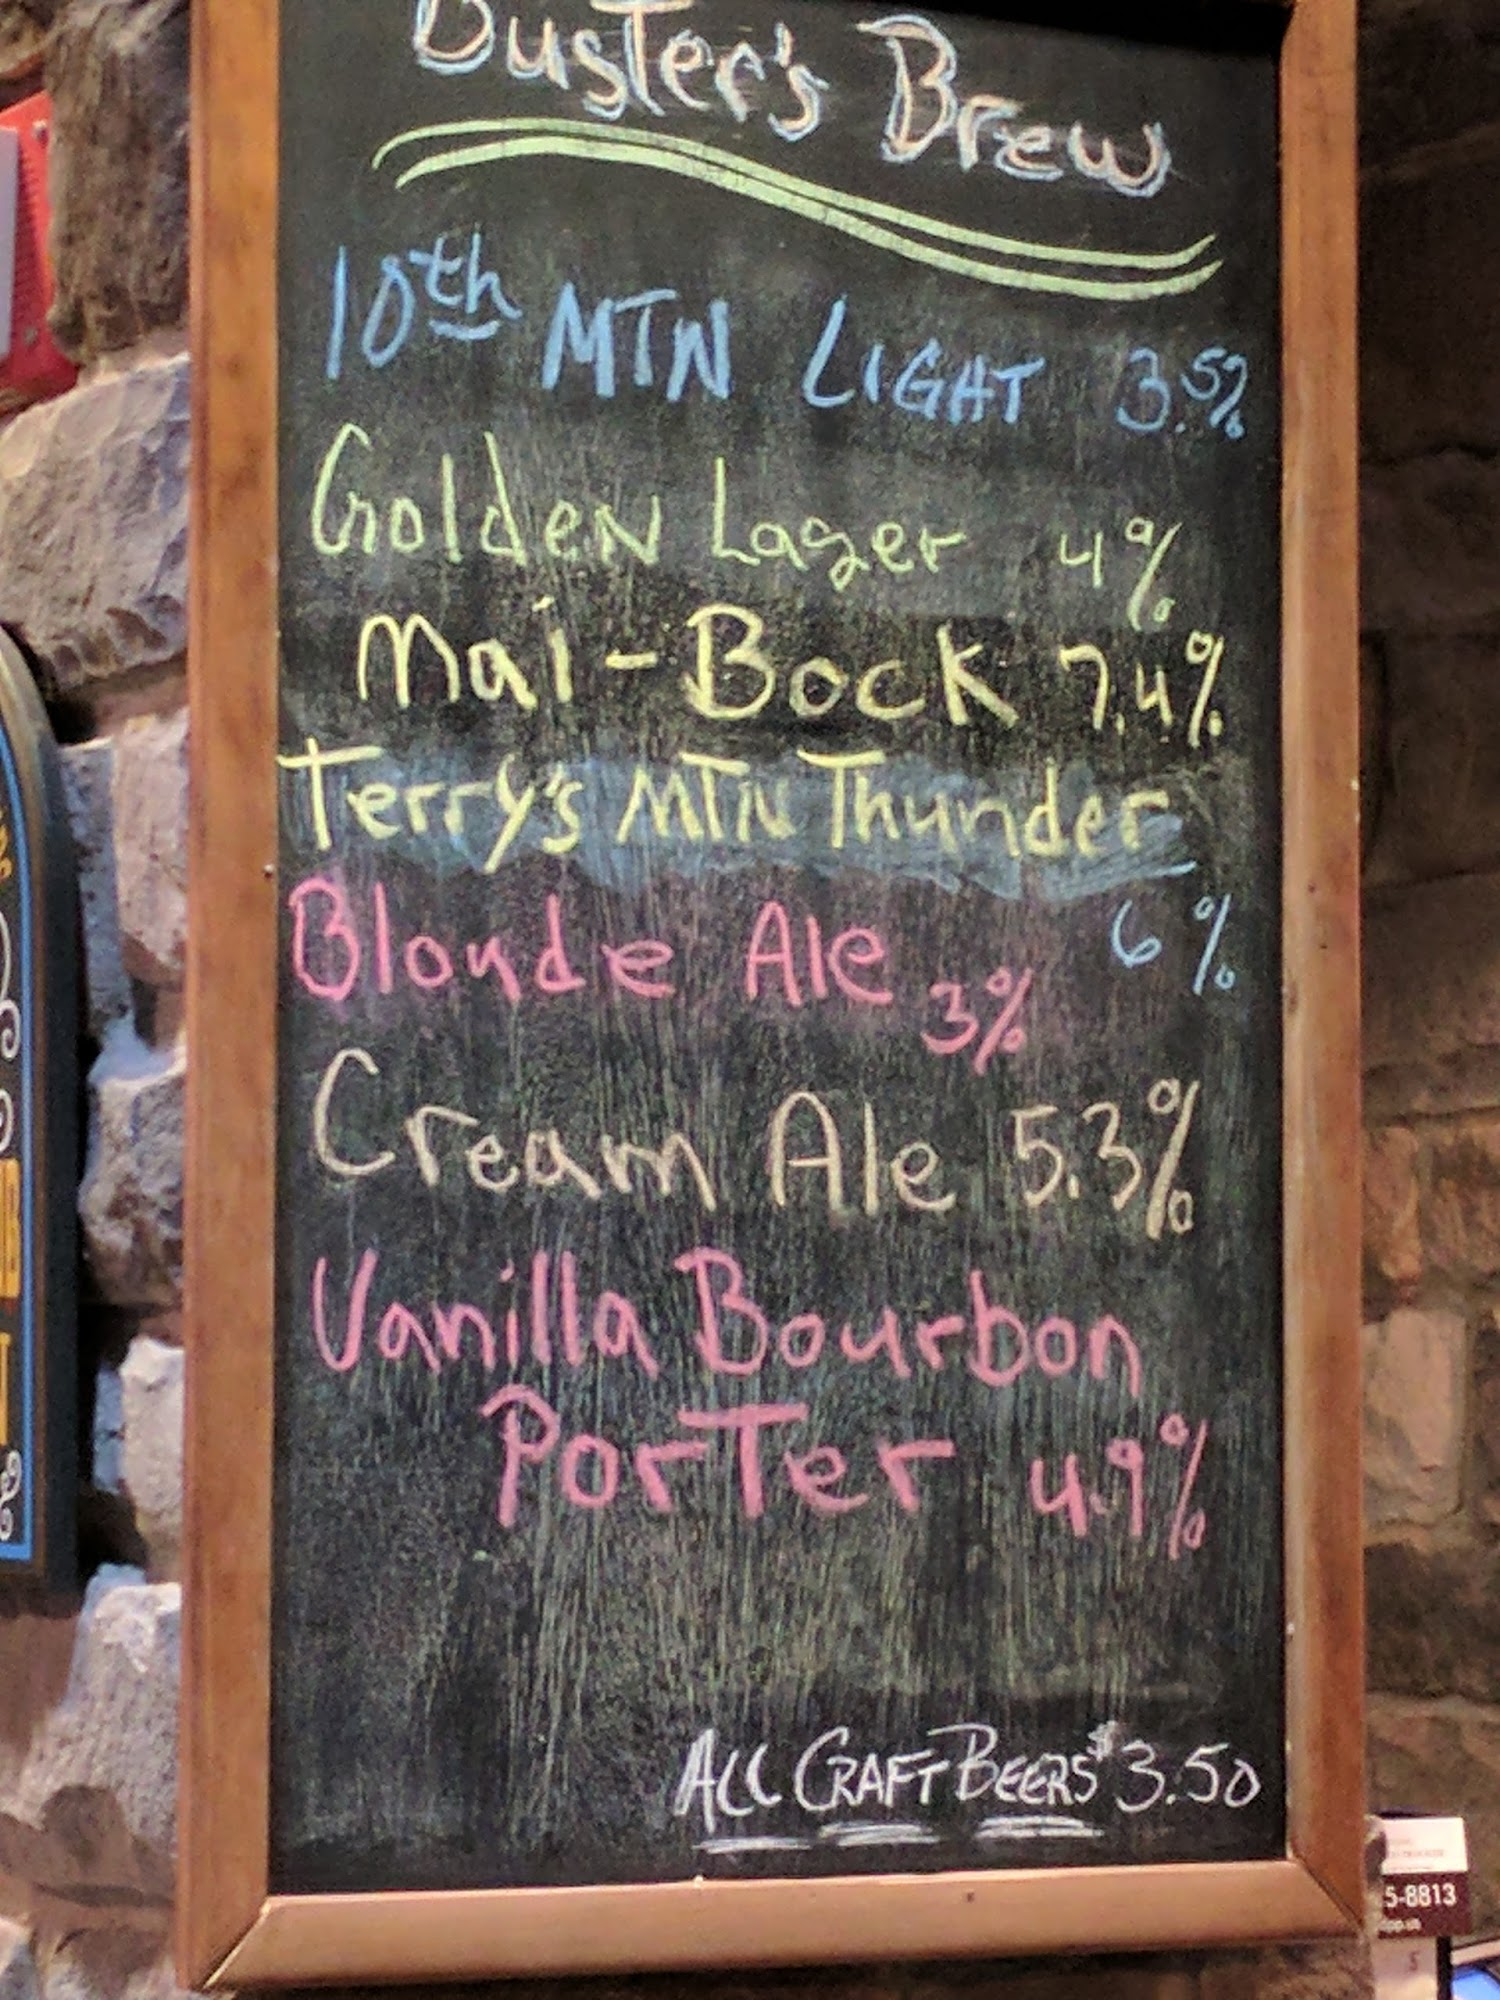 Buster's Brew
10th MTN LIGHT 3.5%
Golden Lager 4%
Mai-Bock 7.4%
Terry's MTN Thunder
6%
Blonde Ale 3%
Cream Ale 5.3%
Vanilla Bourbon
Porter 4.9%
ALL CRAFT BEERS $3.50
5-8813